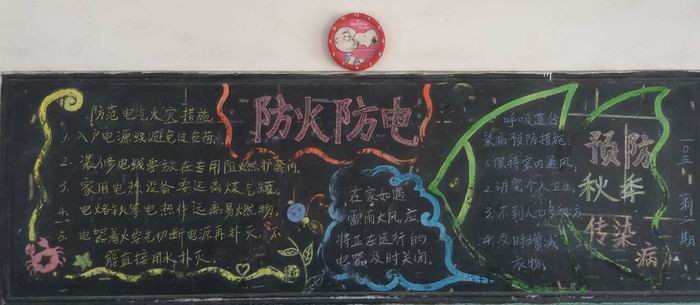 防火防电
防范电气火灾措施
1. 入户电源线避免过负荷
2. 装修电线要放在专用阻燃护套内
3. 家用电热设备要远离煤气罐
4. 电烙铁等电热件远离易燃物
5. 电器着火要先切断电源再扑灭,不
能直接用水扑灭。
在家如遇
雷雨大风应
将正在运行的
电器及时关闭
预防
秋季
传染
病
呼吸道传
染病预防措施
1. 保持室内通风
2. 讲究个人卫生
3. 不到人口
4. 及时增减
衣物